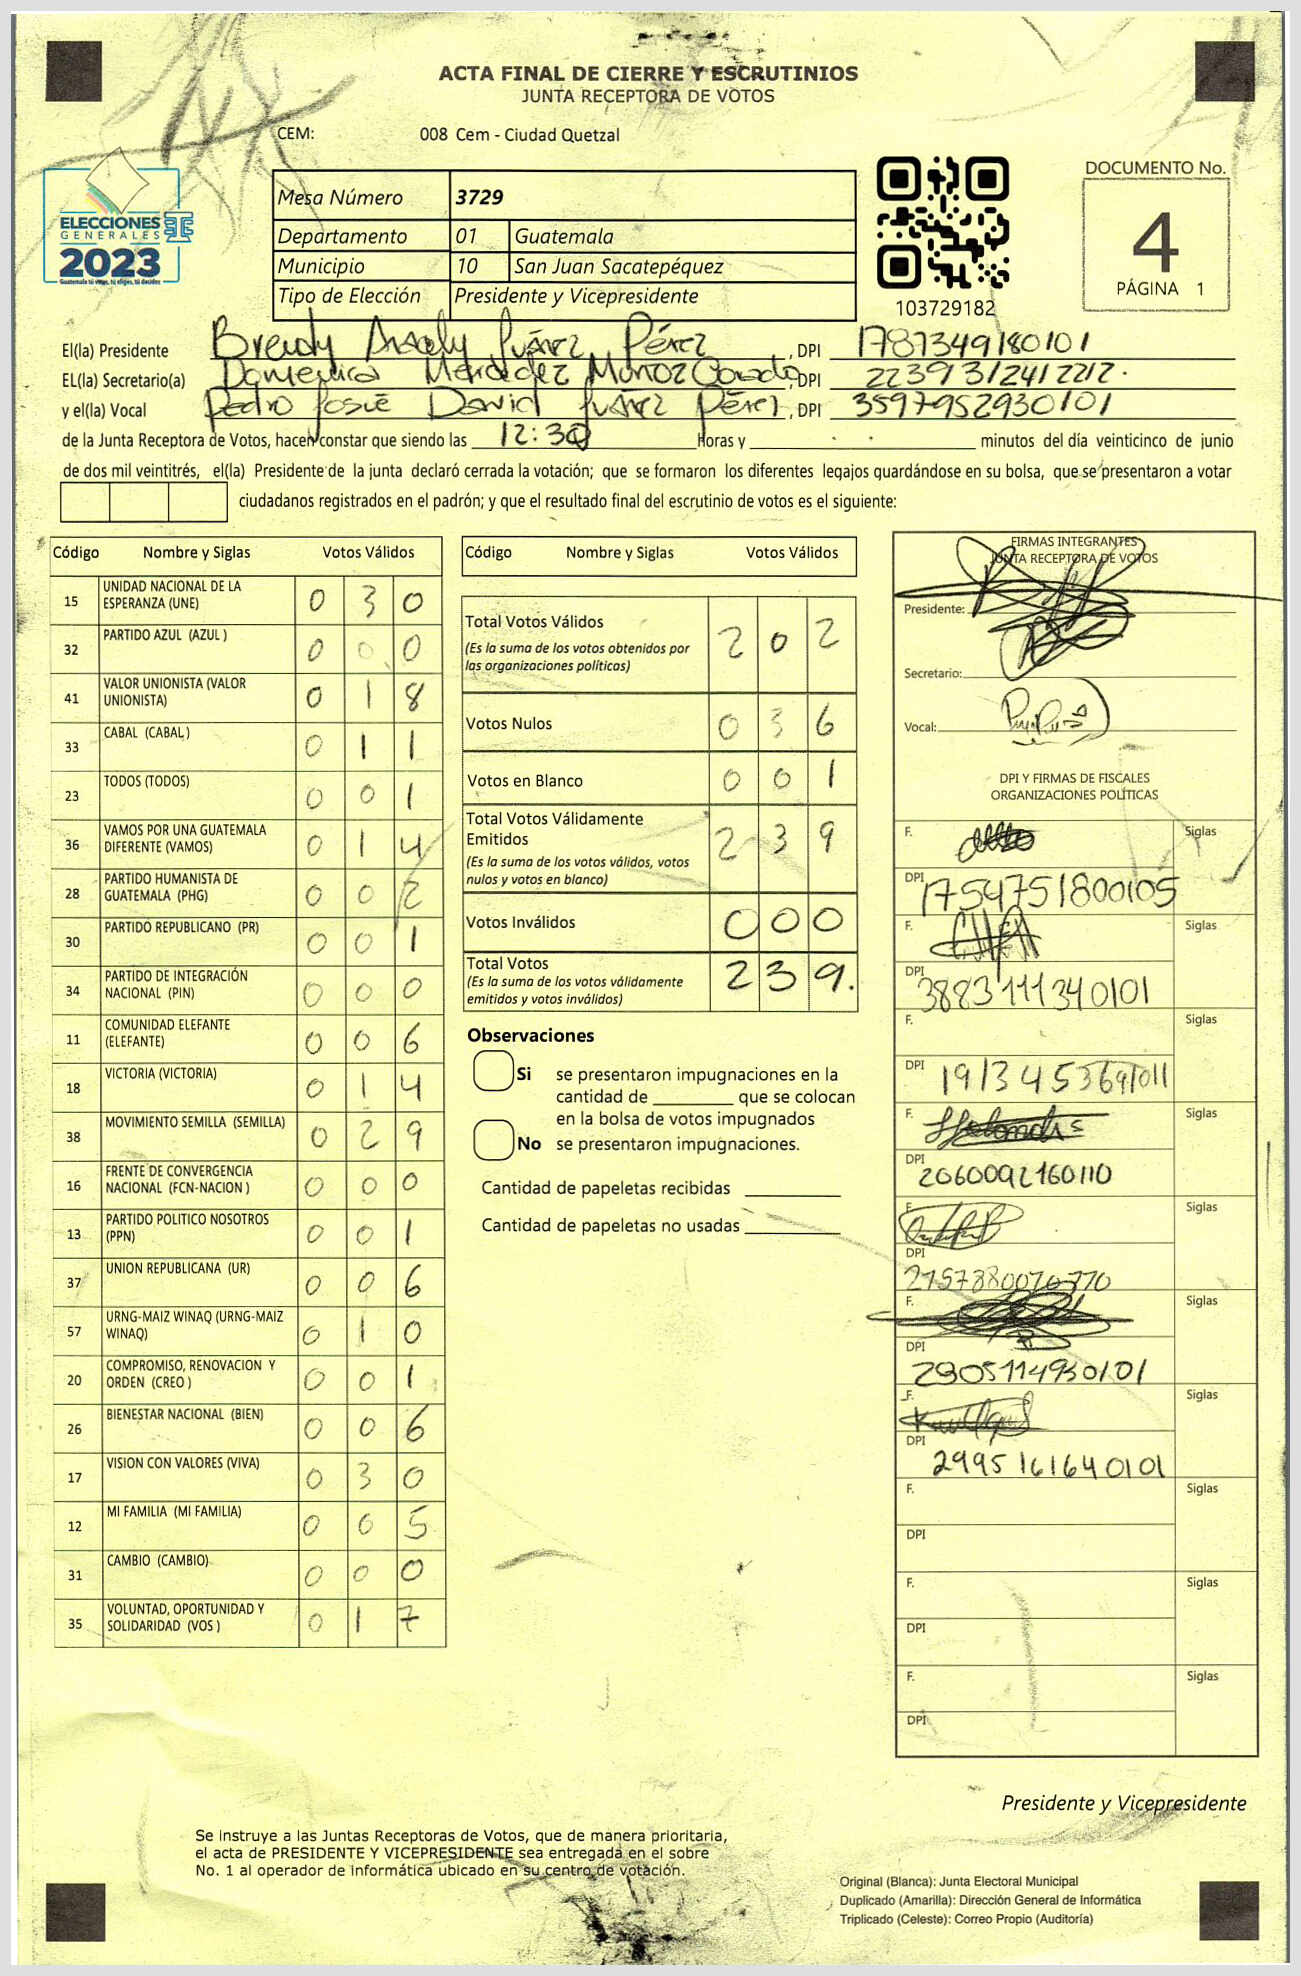 ACTA FINAL DE CIERRE Y ESCRUTINIOS
JUNTA RECEPTORA DE VOTOS
CEM: 008 Cem - Ciudad Quetzal
ELECCIONES
GENERALES
2023
Guatemala tú votas, tú eliges, tú decides
Mesa Número 3729
Departamento 01 Guatemala
Municipio 10 San Juan Sacatepéquez
Tipo de Elección Presidente y Vicepresidente
103729182
DOCUMENTO No.
4
PÁGINA 1
El(la) Presidente Brendy Anaely Juárez Pérez, DPI 1787349180101
EL(la) Secretario(a) Domeniica Méndez Muñoz, DPI 2239131241212.
y el(la) Vocal Pedro Josué David Juárez Pérez, DPI 3597952930101
de la Junta Receptora de Votos, hacen constar que siendo las 12:30 Horas y minutos del día veinticinco de junio
de dos mil veintitrés, el(la) Presidente de la junta declaró cerrada la votación; que se formaron los diferentes legajos guardándose en su bolsa, que se presentaron a votar
ciudadanos registrados en el padrón; y que el resultado final del escrutinio de votos es el siguiente:
Código Nombre y Siglas Votos Válidos
15 UNIDAD NACIONAL DE LA
ESPERANZA (UNE) 0 3 0
32 PARTIDO AZUL (AZUL ) 0 0 0
41 VALOR UNIONISTA (VALOR
UNIONISTA) 0 1 8
33 CABAL (CABAL ) 0 1 1
23 TODOS (TODOS) 0 0 1
36 VAMOS POR UNA GUATEMALA
DIFERENTE (VAMOS) 0 1 4
28 PARTIDO HUMANISTA DE
GUATEMALA (PHG) 0 0 2
30 PARTIDO REPUBLICANO (PR) 0 0 1
34 PARTIDO DE INTEGRACIÓN
NACIONAL (PIN) 0 0 0
11 COMUNIDAD ELEFANTE
(ELEFANTE) 0 0 6
18 VICTORIA (VICTORIA) 0 1 4
38 MOVIMIENTO SEMILLA (SEMILLA) 0 2 9
16 FRENTE DE CONVERGENCIA
NACIONAL (FCN-NACION ) 0 0 0
13 PARTIDO POLITICO NOSOTROS
(PPN) 0 0 1
37 UNION REPUBLICANA (UR) 0 0 6
57 URNG-MAIZ WINAQ (URNG-MAIZ
WINAQ) 0 1 0
20 COMPROMISO, RENOVACION Y
ORDEN (CREO ) 0 0 1
26 BIENESTAR NACIONAL (BIEN) 0 0 6
17 VISION CON VALORES (VIVA) 0 3 0
12 MI FAMILIA (MI FAMILIA) 0 0 5
31 CAMBIO (CAMBIO) 0 0 0
35 VOLUNTAD, OPORTUNIDAD Y
SOLIDARIDAD (VOS ) 0 1 7
Código Nombre y Siglas Votos Válidos
Total Votos Válidos 2 0 2
(Es la suma de los votos obtenidos por
las organizaciones políticas)
Votos Nulos 0 3 6
Votos en Blanco 0 0 1
Total Votos Válidamente
Emitidos 2 3 9
(Es la suma de los votos válidos, votos
nulos y votos en blanco)
Votos Inválidos 0 0 0
Total Votos 2 3 9.
(Es la suma de los votos válidamente
emitidos y votos inválidos)
Observaciones
Si se presentaron impugnaciones en la
cantidad de que se colocan
en la bolsa de votos impugnados
No se presentaron impugnaciones.
Cantidad de papeletas recibidas
Cantidad de papeletas no usadas
FIRMAS INTEGRANTES
JUNTA RECEPTORA DE VOTOS
Presidente:
Secretario:
Vocal:
DPI Y FIRMAS DE FISCALES
ORGANIZACIONES POLÍTICAS
F. Siglas
DPI 1754751800105
F. Siglas
DPI 3883111340101
F. Siglas
DPI 1913453691011
F. Siglas
DPI 2060092160110
F. Siglas
DPI
F. Siglas
DPI 2905114950101
F. Siglas
DPI 2995161640101
F. Siglas
DPI
F. Siglas
DPI
F. Siglas
DPI
Presidente y Vicepresidente
Se instruye a las Juntas Receptoras de Votos, que de manera prioritaria,
el acta de PRESIDENTE Y VICEPRESIDENTE sea entregada en el sobre
No. 1 al operador de informática ubicado en su centro de votación.
Original (Blanca): Junta Electoral Municipal
Duplicado (Amarilla): Dirección General de Informática
Triplicado (Celeste): Correo Propio (Auditoría)